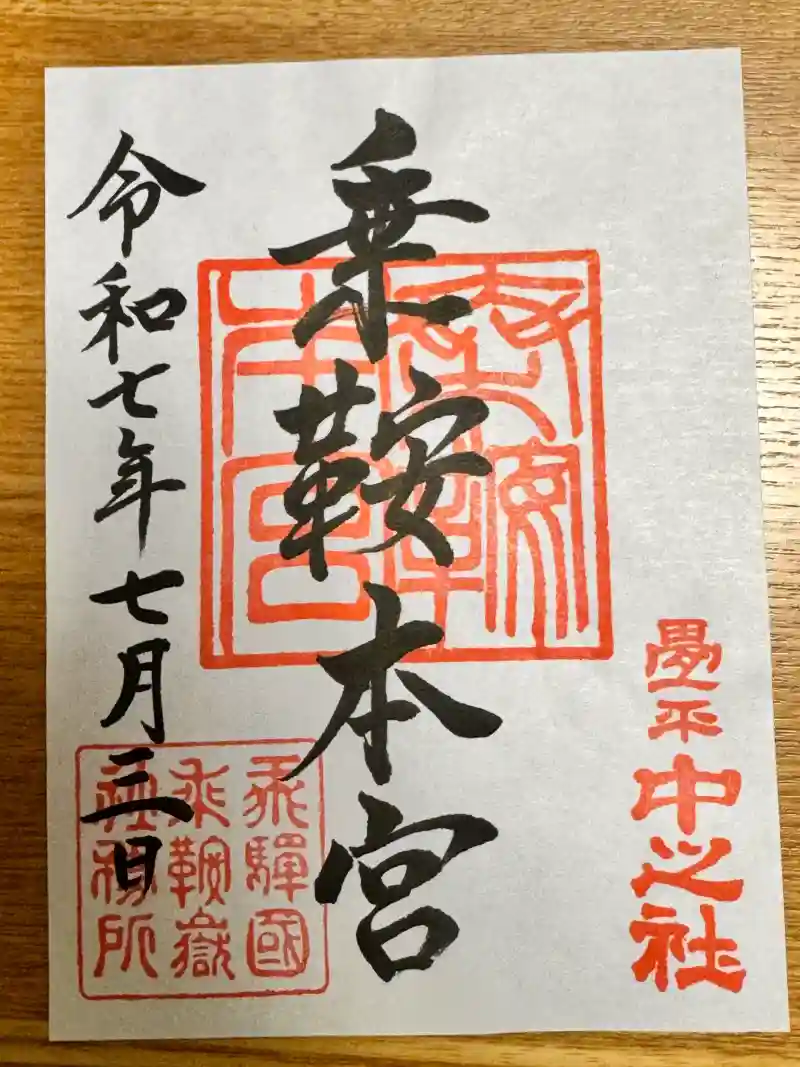 畳平
中之社
乗鞍本宮
乗鞍
本宮
令和七年七月三日
飛驒國
乗鞍嶽
社務所